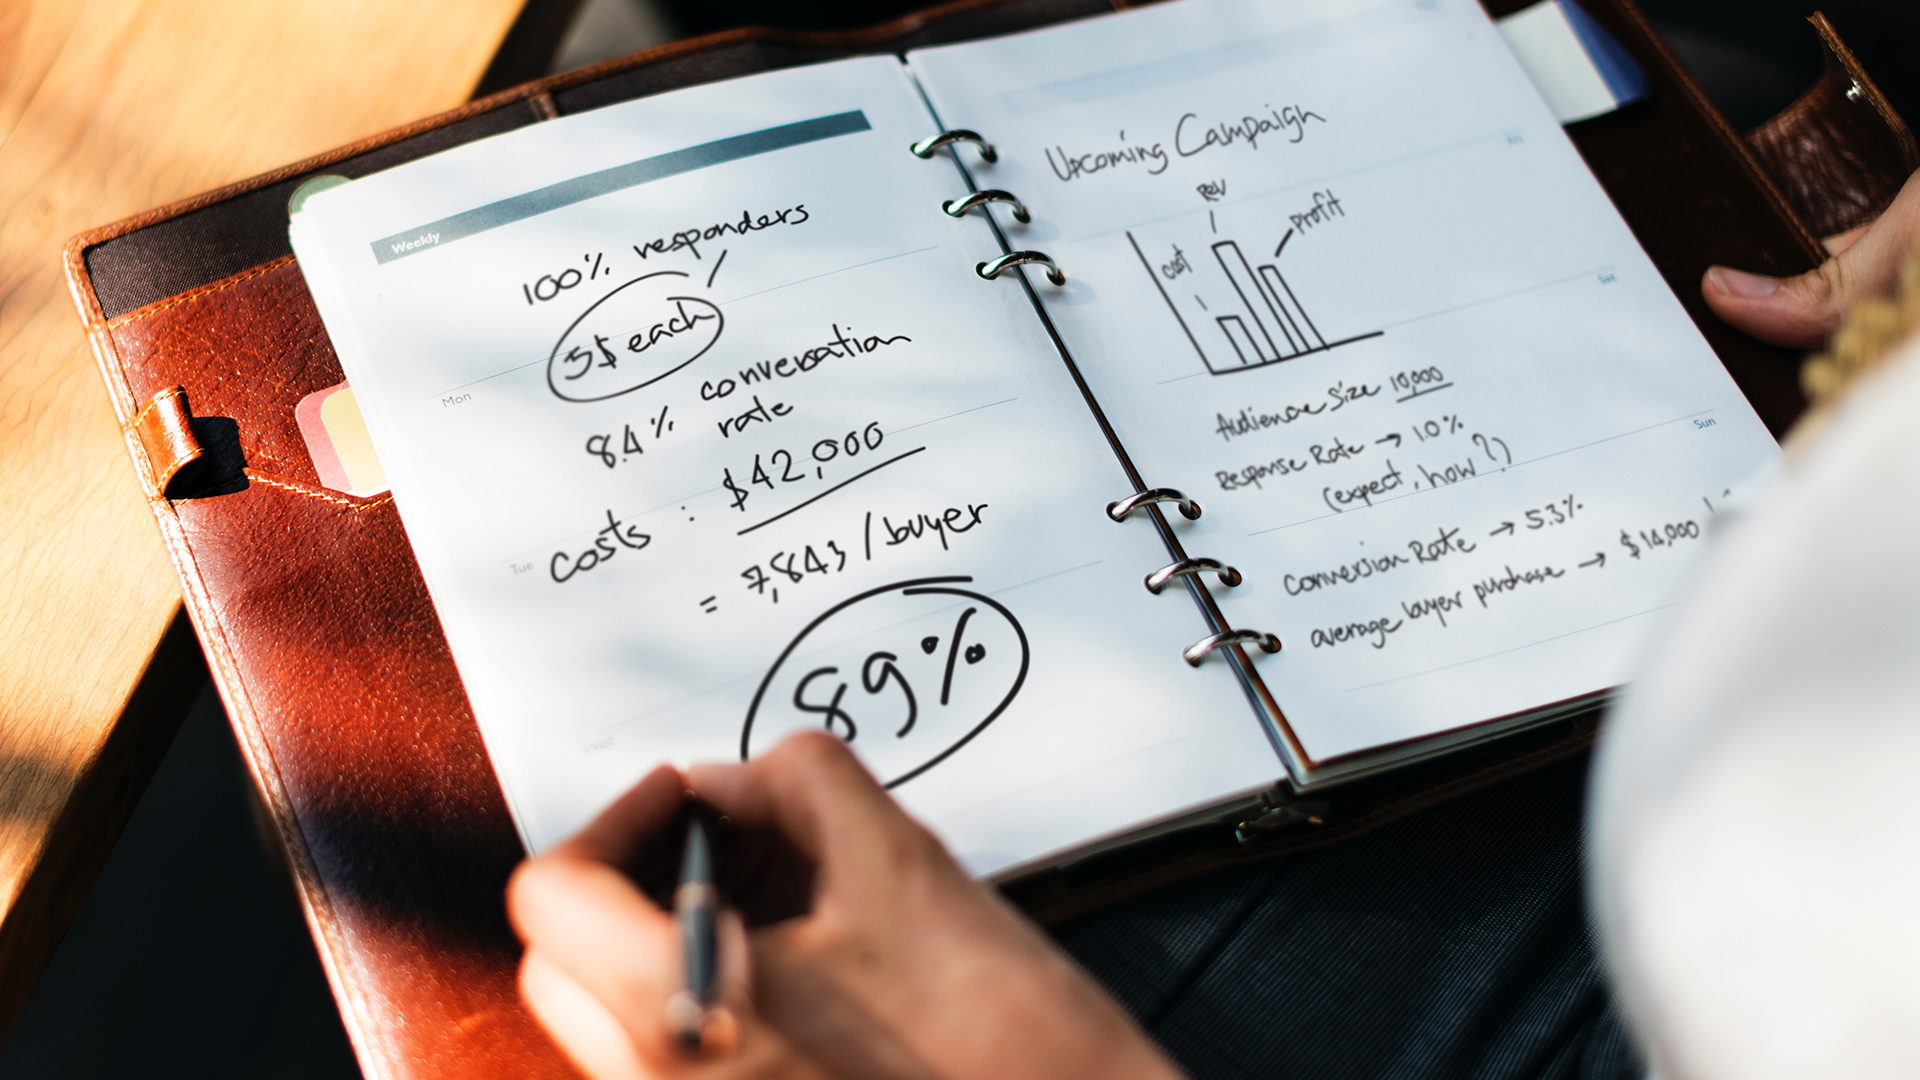 Weekly
100% responders
5$ each
Mon
8.4% conversation
rate
$42,000
Tue
costs :
= 7,843 / buyer
89%
Wed
Upcoming Campaign
Fri
Rev
profit
cost
Sat
Audience Size 10,000
Sun
Response Rate → 1.0%
(expect, how?)
Conversion Rate → 5.3%
average buyer purchase → $14,000